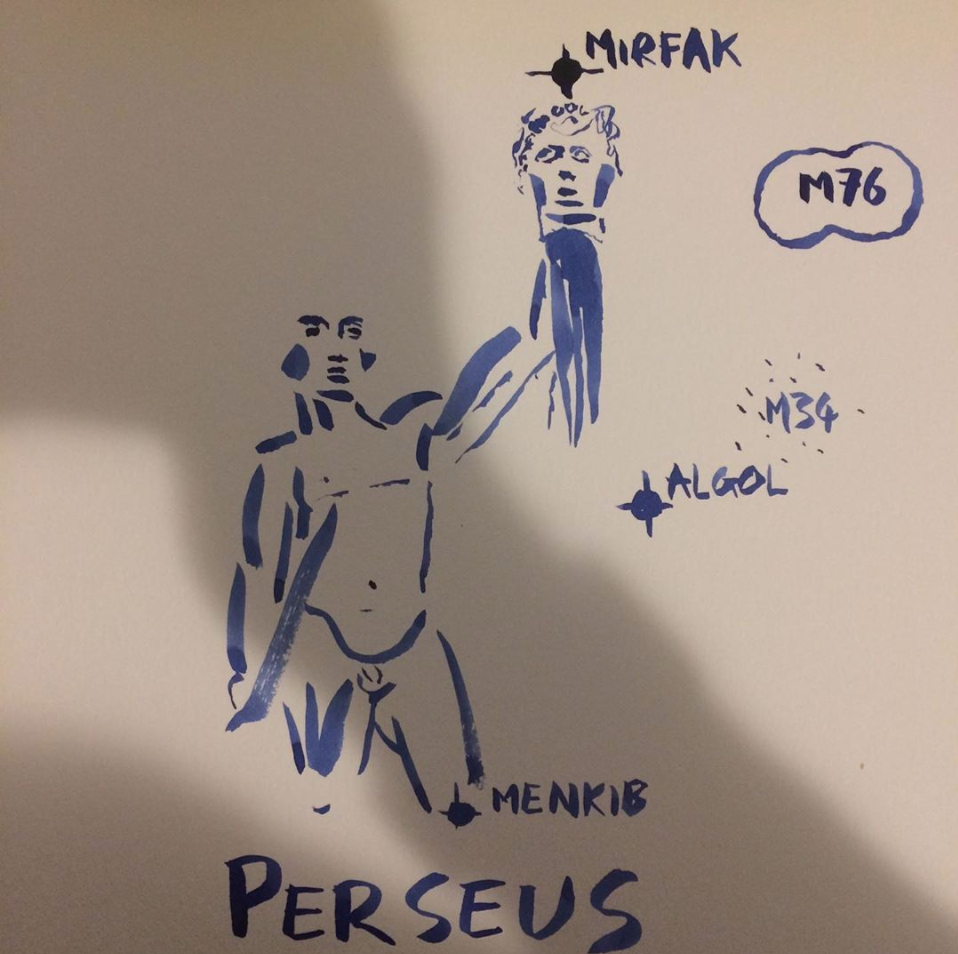 MIRFAK
M76
M34
ALGOL
MENKIB
PERSEUS